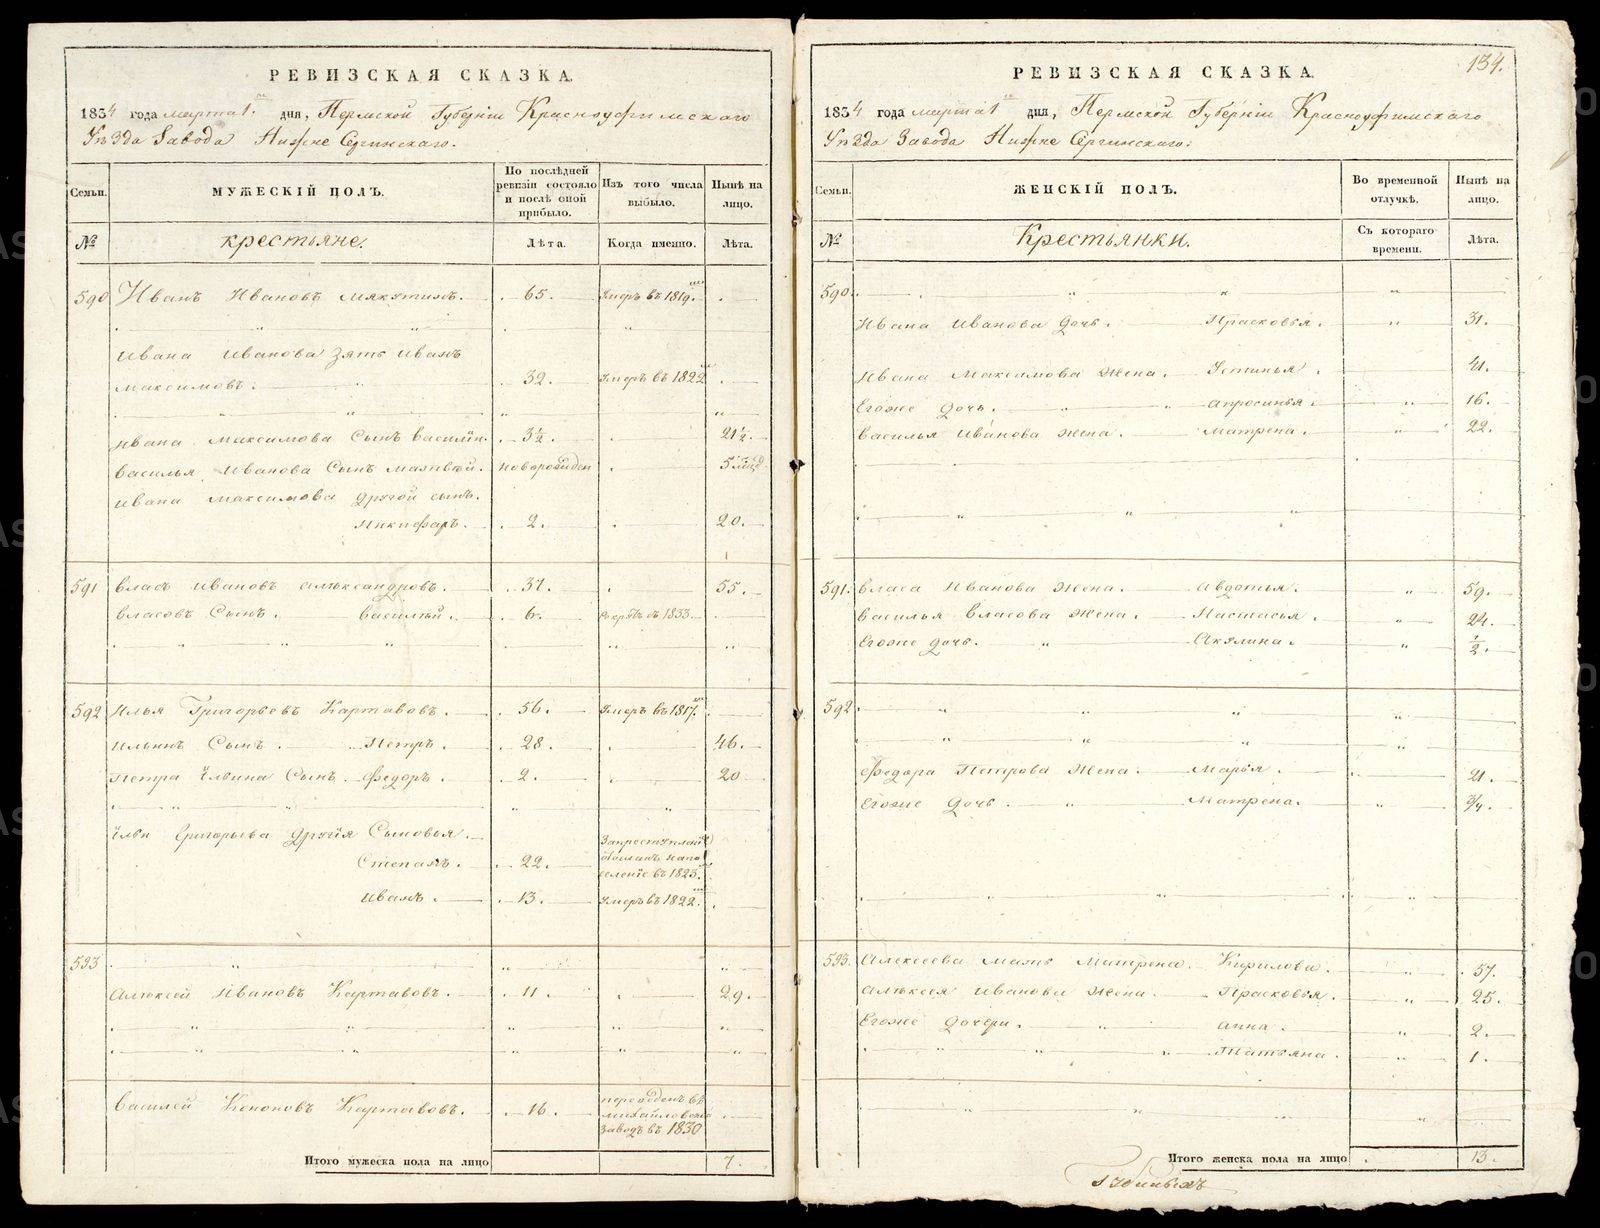 РЕВИЗСКАЯ СКАЗКА.
1834 года марта 1. дня, Пермской Губернїи Красноуфимскаго
Уѣзда Завода Нижне Сергинскаго.
Семьи.
МУЖЕСКІЙ ПОЛЪ.
По послѣдней ревизіи состояло и послѣ оной прибыло.
Изъ того числа выбыло.
Нынѣ на лицо.
№
крестьяне.
Лѣта.
Когда именно.
Лѣта.
590 Иванъ Ивановъ Мякутинъ. 65. Умеръ въ 1819.
Ивана Иванова Зять Иванъ
Максимовъ. 32. Умеръ въ 1822
Ивана Максимова Сынъ Василїи. 3½. 21½.
Василья Иванова Сынъ Матвѣй. новорожден
Ивана Максимова другой сынъ.
Никифаръ. 2. 20.
591 Власъ Ивановъ Алѣксандровъ. 37. 55.
Власовъ Сынъ. Василѣй. 6. въ 1833.
592 Илья Григорьевъ Картавовъ. 56. Умеръ въ 1817.
Ильинъ Сынъ. Петръ. 28. 46.
Петра Ильина Сынъ. Федоръ. 2. 20
Ильи Григорьева другїя Сыновья.
Степанъ. 22. Запреступлен Отосланъ напоселенїе въ 1823.
Иванъ. 13. Умеръ въ 1822.
593
Алѣксей Ивановъ Картавовъ. 11. 29.
Василей Кононовъ Картавовъ. 16. переведенъ въ михайловской заводъ въ 1830
Итого мужеска пола на лицо 7.
134.
РЕВИЗСКАЯ СКАЗКА.
1834 года марта 1 дня, Пермской Губернїи Красноуфимскаго
Уѣзда Завода Нижне Сергинскаго.
Семьи.
ЖЕНСКІЙ ПОЛЪ.
Во временной отлучкѣ.
Нынѣ на лицо.
№
Крестьянки.
Съ котораго времени.
Лѣта.
590.
Ивана Иванова дочь. Прасковья. 31.
Ивана Максимова Жена. Устинья. 41.
Егоже дочь. Апросинья. 16.
Василья Иванова жена. Матрена. 22.
591. Власа Иванова Жена. Авдотья. 59.
Василья Власова Жена. Настасья. 24.
Егоже дочь. Акулина. ½.
592
Федора Петрова Жена. Марья. 21.
Егоже Дочь. Матрена. ¾.
593. Алексеева мать Матрена Кирилова. 57.
Алѣксея Иванова Жена. Прасковья. 25.
Егоже дочери. Анна. 2.
Татьяна. 1.
Итого женска пола на лицо 13.